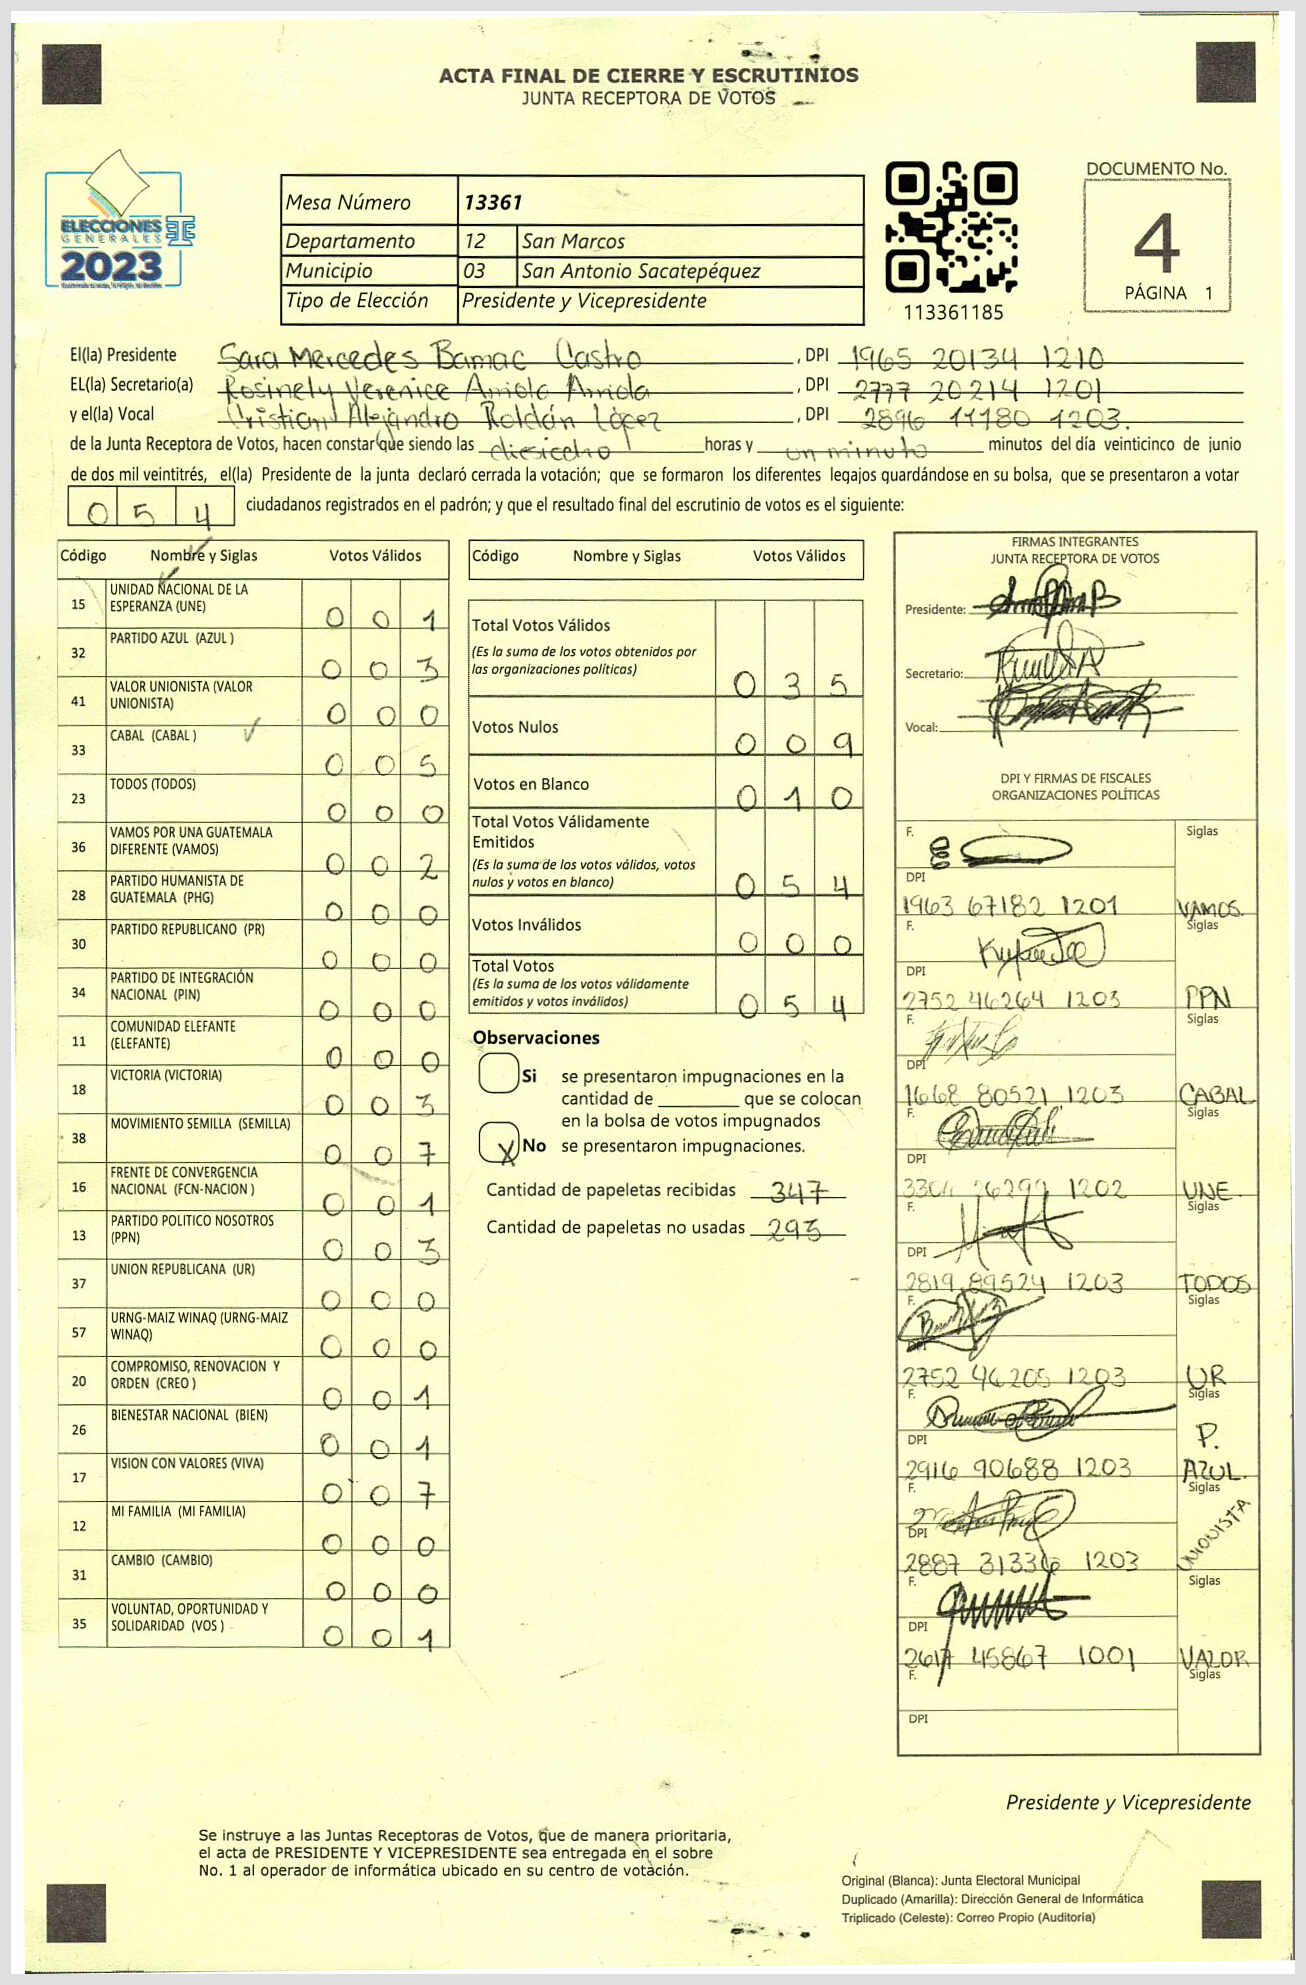 ACTA FINAL DE CIERRE Y ESCRUTINIOS
JUNTA RECEPTORA DE VOTOS
ELECCIONES
GENERALES
2023
Mesa Número 13361
Departamento 12 San Marcos
Municipio 03 San Antonio Sacatepéquez
Tipo de Elección Presidente y Vicepresidente
113361185
DOCUMENTO No.
4
PÁGINA 1
El(la) Presidente Sara Mercedes Bamac Castro , DPI 1965 20134 1210
EL(la) Secretario(a) Rosinely Verenice Arriola Arriola , DPI 2777 20214 1201
y el(la) Vocal Cristian Alejandro Roldán López , DPI 2896 11180 1203.
de la Junta Receptora de Votos, hacen constar que siendo las horas y un minuto minutos del día veinticinco de junio
de dos mil veintitrés, el(la) Presidente de la junta declaró cerrada la votación; que se formaron los diferentes legajos guardándose en su bolsa, que se presentaron a votar
0 5 4 ciudadanos registrados en el padrón; y que el resultado final del escrutinio de votos es el siguiente:
Código Nombre y Siglas Votos Válidos
15 UNIDAD NACIONAL DE LA
ESPERANZA (UNE) 0 0 1
32 PARTIDO AZUL (AZUL ) 0 0 3
41 VALOR UNIONISTA (VALOR
UNIONISTA) 0 0 0
33 CABAL (CABAL ) 0 0 5
23 TODOS (TODOS) 0 0 0
36 VAMOS POR UNA GUATEMALA
DIFERENTE (VAMOS) 0 0 2
28 PARTIDO HUMANISTA DE
GUATEMALA (PHG) 0 0 0
30 PARTIDO REPUBLICANO (PR) 0 0 0
34 PARTIDO DE INTEGRACIÓN
NACIONAL (PIN) 0 0 0
11 COMUNIDAD ELEFANTE
(ELEFANTE) 0 0 0
18 VICTORIA (VICTORIA) 0 0 3
38 MOVIMIENTO SEMILLA (SEMILLA) 0 0 7
16 FRENTE DE CONVERGENCIA
NACIONAL (FCN-NACION ) 0 0 1
13 PARTIDO POLITICO NOSOTROS
(PPN) 0 0 3
37 UNION REPUBLICANA (UR) 0 0 0
57 URNG-MAIZ WINAQ (URNG-MAIZ
WINAQ) 0 0 0
20 COMPROMISO, RENOVACION Y
ORDEN (CREO ) 0 0 1
26 BIENESTAR NACIONAL (BIEN) 0 0 1
17 VISION CON VALORES (VIVA) 0 0 7
12 MI FAMILIA (MI FAMILIA) 0 0 0
31 CAMBIO (CAMBIO) 0 0 0
35 VOLUNTAD, OPORTUNIDAD Y
SOLIDARIDAD (VOS ) 0 0 1
Código Nombre y Siglas Votos Válidos
Total Votos Válidos
(Es la suma de los votos obtenidos por
las organizaciones políticas) 0 3 5
Votos Nulos 0 0 9
Votos en Blanco 0 1 0
Total Votos Válidamente
Emitidos
(Es la suma de los votos válidos, votos
nulos y votos en blanco) 0 5 4
Votos Inválidos 0 0 0
Total Votos
(Es la suma de los votos válidamente
emitidos y votos inválidos) 0 5 4
Observaciones
Si se presentaron impugnaciones en la
cantidad de ________ que se colocan
en la bolsa de votos impugnados
X No se presentaron impugnaciones.
Cantidad de papeletas recibidas 347
Cantidad de papeletas no usadas 293
FIRMAS INTEGRANTES
JUNTA RECEPTORA DE VOTOS
Presidente:
Secretario:
Vocal:
DPI Y FIRMAS DE FISCALES
ORGANIZACIONES POLÍTICAS
F. Siglas
DPI
1963 67182 1201 VAMOS.
F. Siglas
DPI
2752 46264 1203 PPN
F. Siglas
DPI
1668 80521 1203 CABAL
F. Siglas
DPI
1202 UNE.
F. Siglas
DPI
2819 89524 1203 TODOS
F. Siglas
DPI
2752 46205 1203 UR
F. Siglas
DPI P.
2916 90688 1203 AZUL.
F. Siglas
DPI
2887 31336 1203 UNIONISTA
F. Siglas
DPI
2617 45867 1001 VALOR
F. Siglas
DPI
Presidente y Vicepresidente
Se instruye a las Juntas Receptoras de Votos, que de manera prioritaria,
el acta de PRESIDENTE Y VICEPRESIDENTE sea entregada en el sobre
No. 1 al operador de informática ubicado en su centro de votación.
Original (Blanca): Junta Electoral Municipal
Duplicado (Amarilla): Dirección General de Informática
Triplicado (Celeste): Correo Propio (Auditoría)